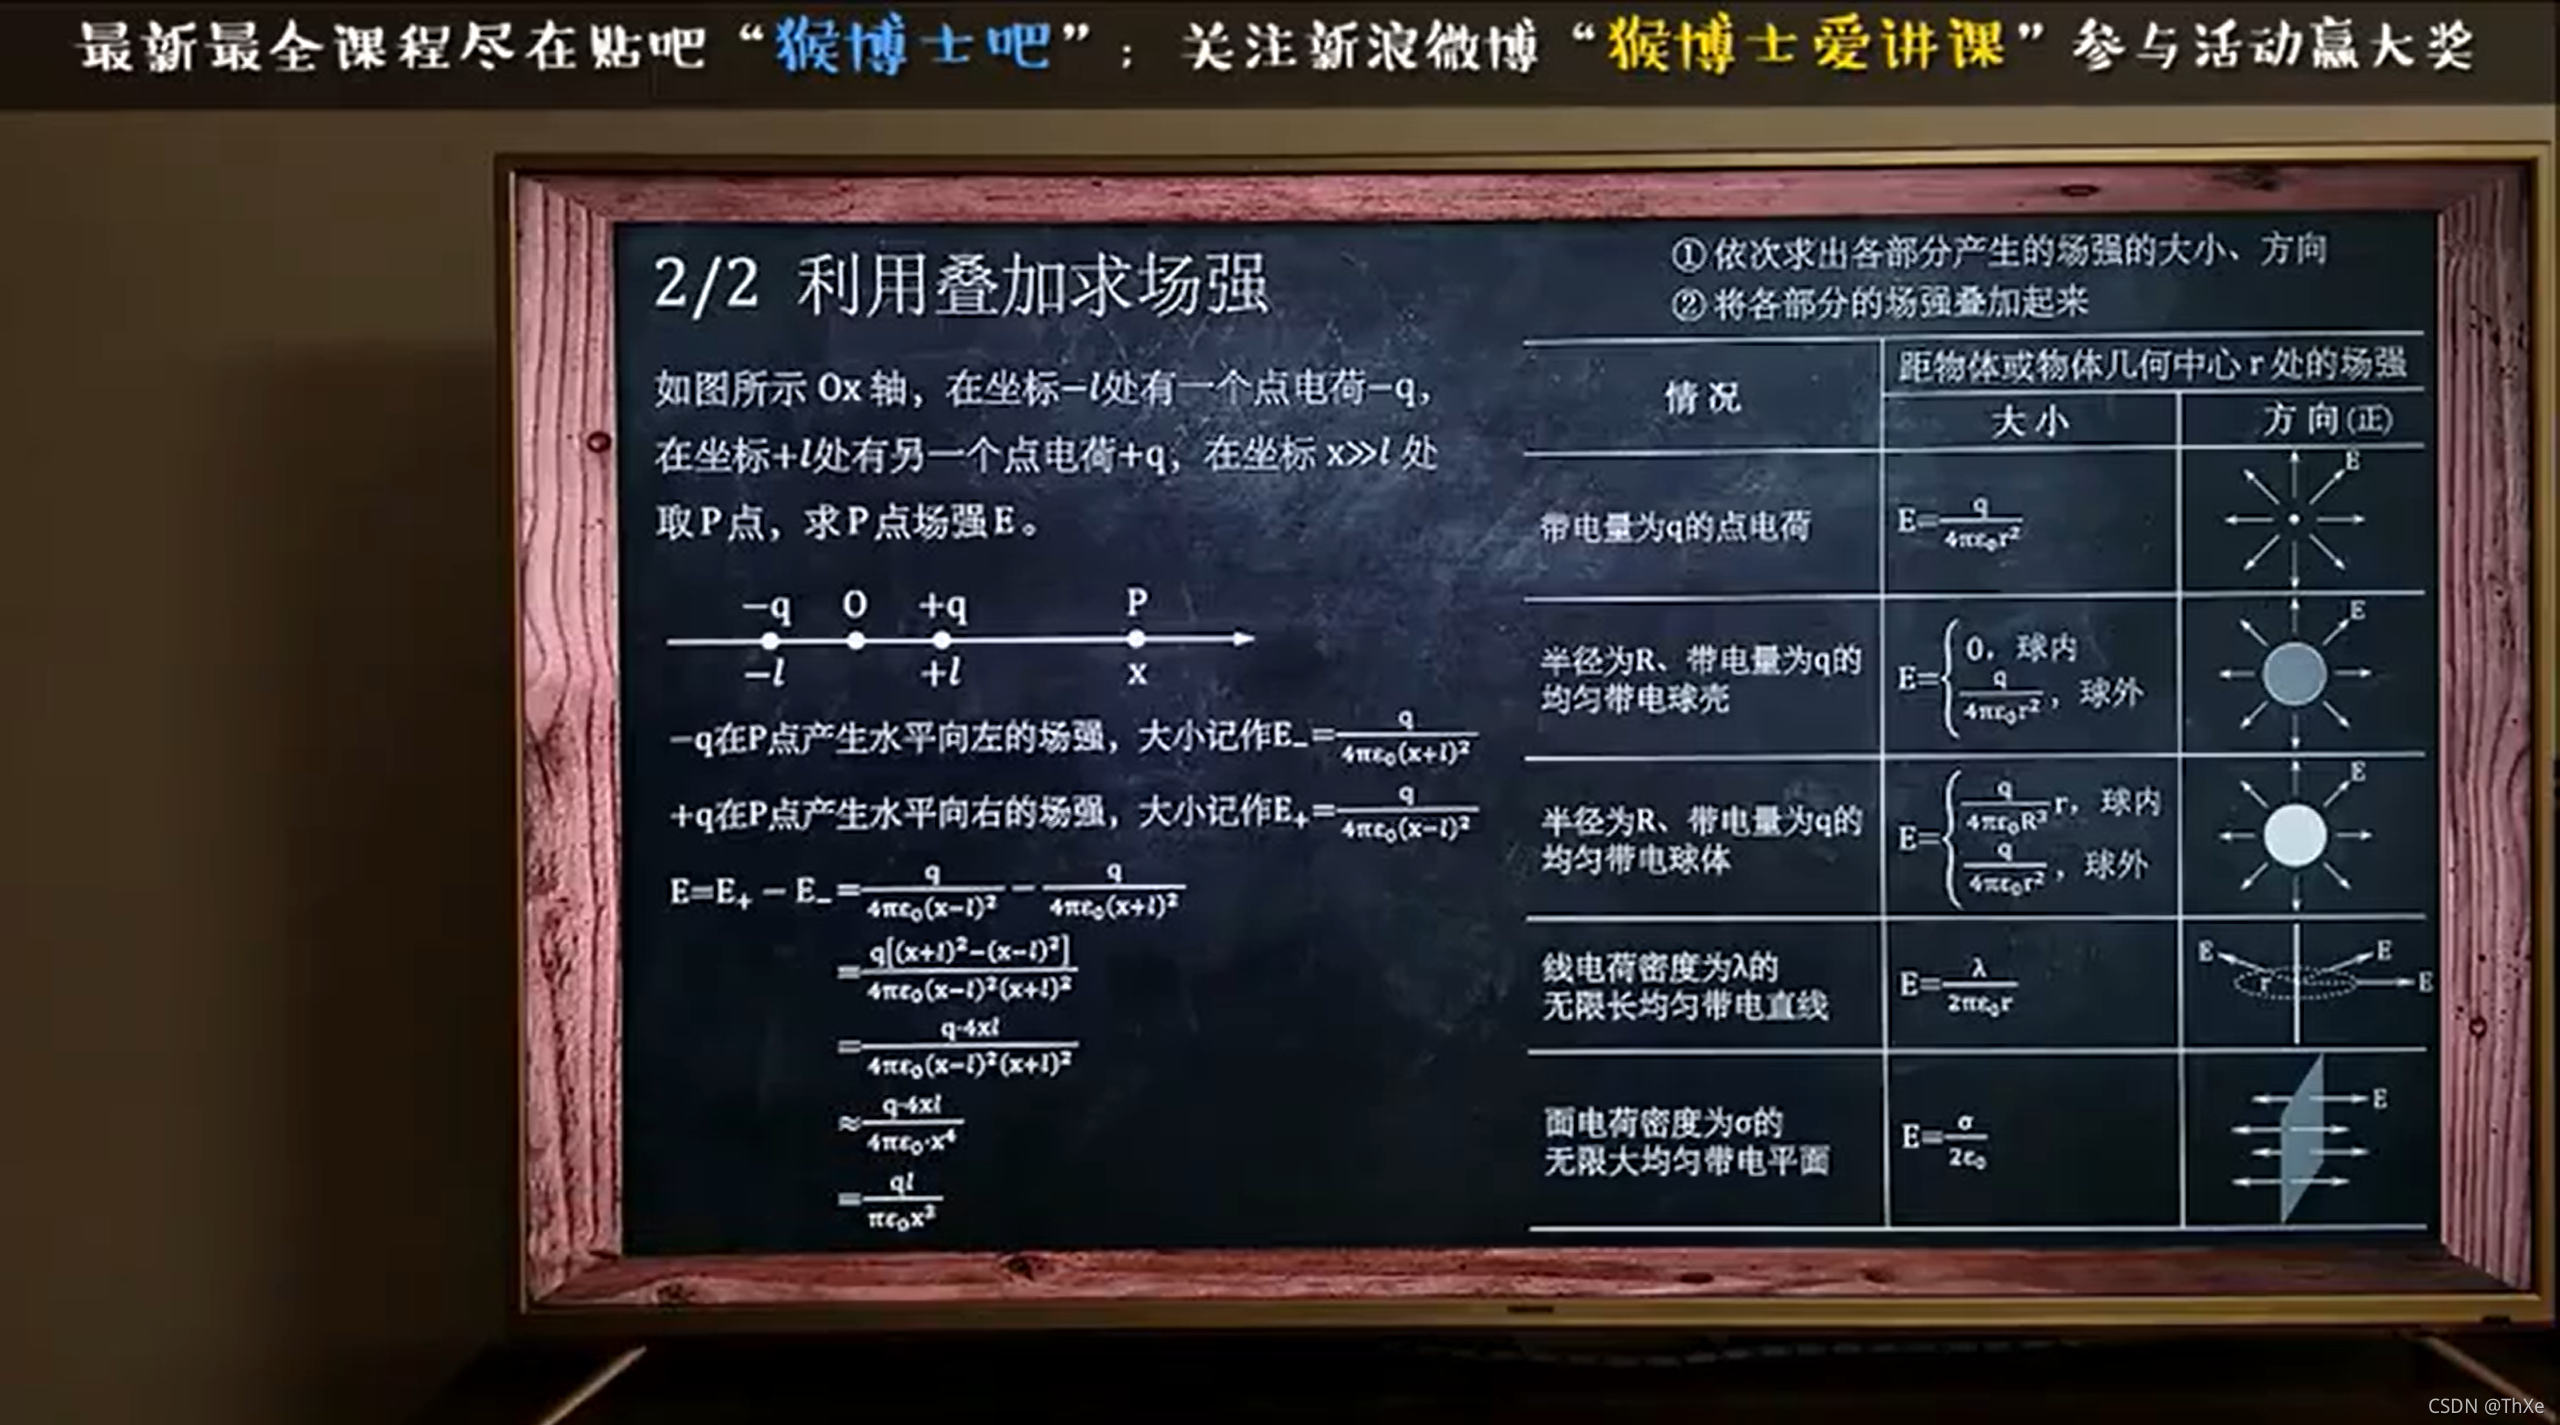 最新最全课程尽在贴吧“猴博士吧”；关注新浪微博“猴博士爱讲课”参与活动赢大奖
2/2 利用叠加求场强
如图所示 Ox 轴，在坐标−l处有一个点电荷−q，
在坐标+l处有另一个点电荷+q，在坐标 x≫l 处
取P点，求P点场强E。
−q O +q P
−l +l x
−q在P点产生水平向左的场强，大小记作E₋=q/(4πε₀(x+l)²)
+q在P点产生水平向右的场强，大小记作E₊=q/(4πε₀(x−l)²)
E=E₊ − E₋=q/(4πε₀(x−l)²) − q/(4πε₀(x+l)²)
=q[(x+l)²−(x−l)²]/(4πε₀(x−l)²(x+l)²)
=q·4xl/(4πε₀(x−l)²(x+l)²)
≈q·4xl/(4πε₀·x⁴)
=ql/(πε₀x³)
① 依次求出各部分产生的场强的大小、方向
② 将各部分的场强叠加起来
情况
距物体或物体几何中心 r 处的场强
大小
方向(正)
带电量为q的点电荷
E=q/(4πε₀r²)
E
半径为R、带电量为q的
均匀带电球壳
E={0，球内
q/(4πε₀r²)，球外
E
半径为R、带电量为q的
均匀带电球体
E={q/(4πε₀R³)r，球内
q/(4πε₀r²)，球外
E
线电荷密度为λ的
无限长均匀带电直线
E=λ/(2πε₀r)
E E
r E
面电荷密度为σ的
无限大均匀带电平面
E=σ/(2ε₀)
E
CSDN @ThXe